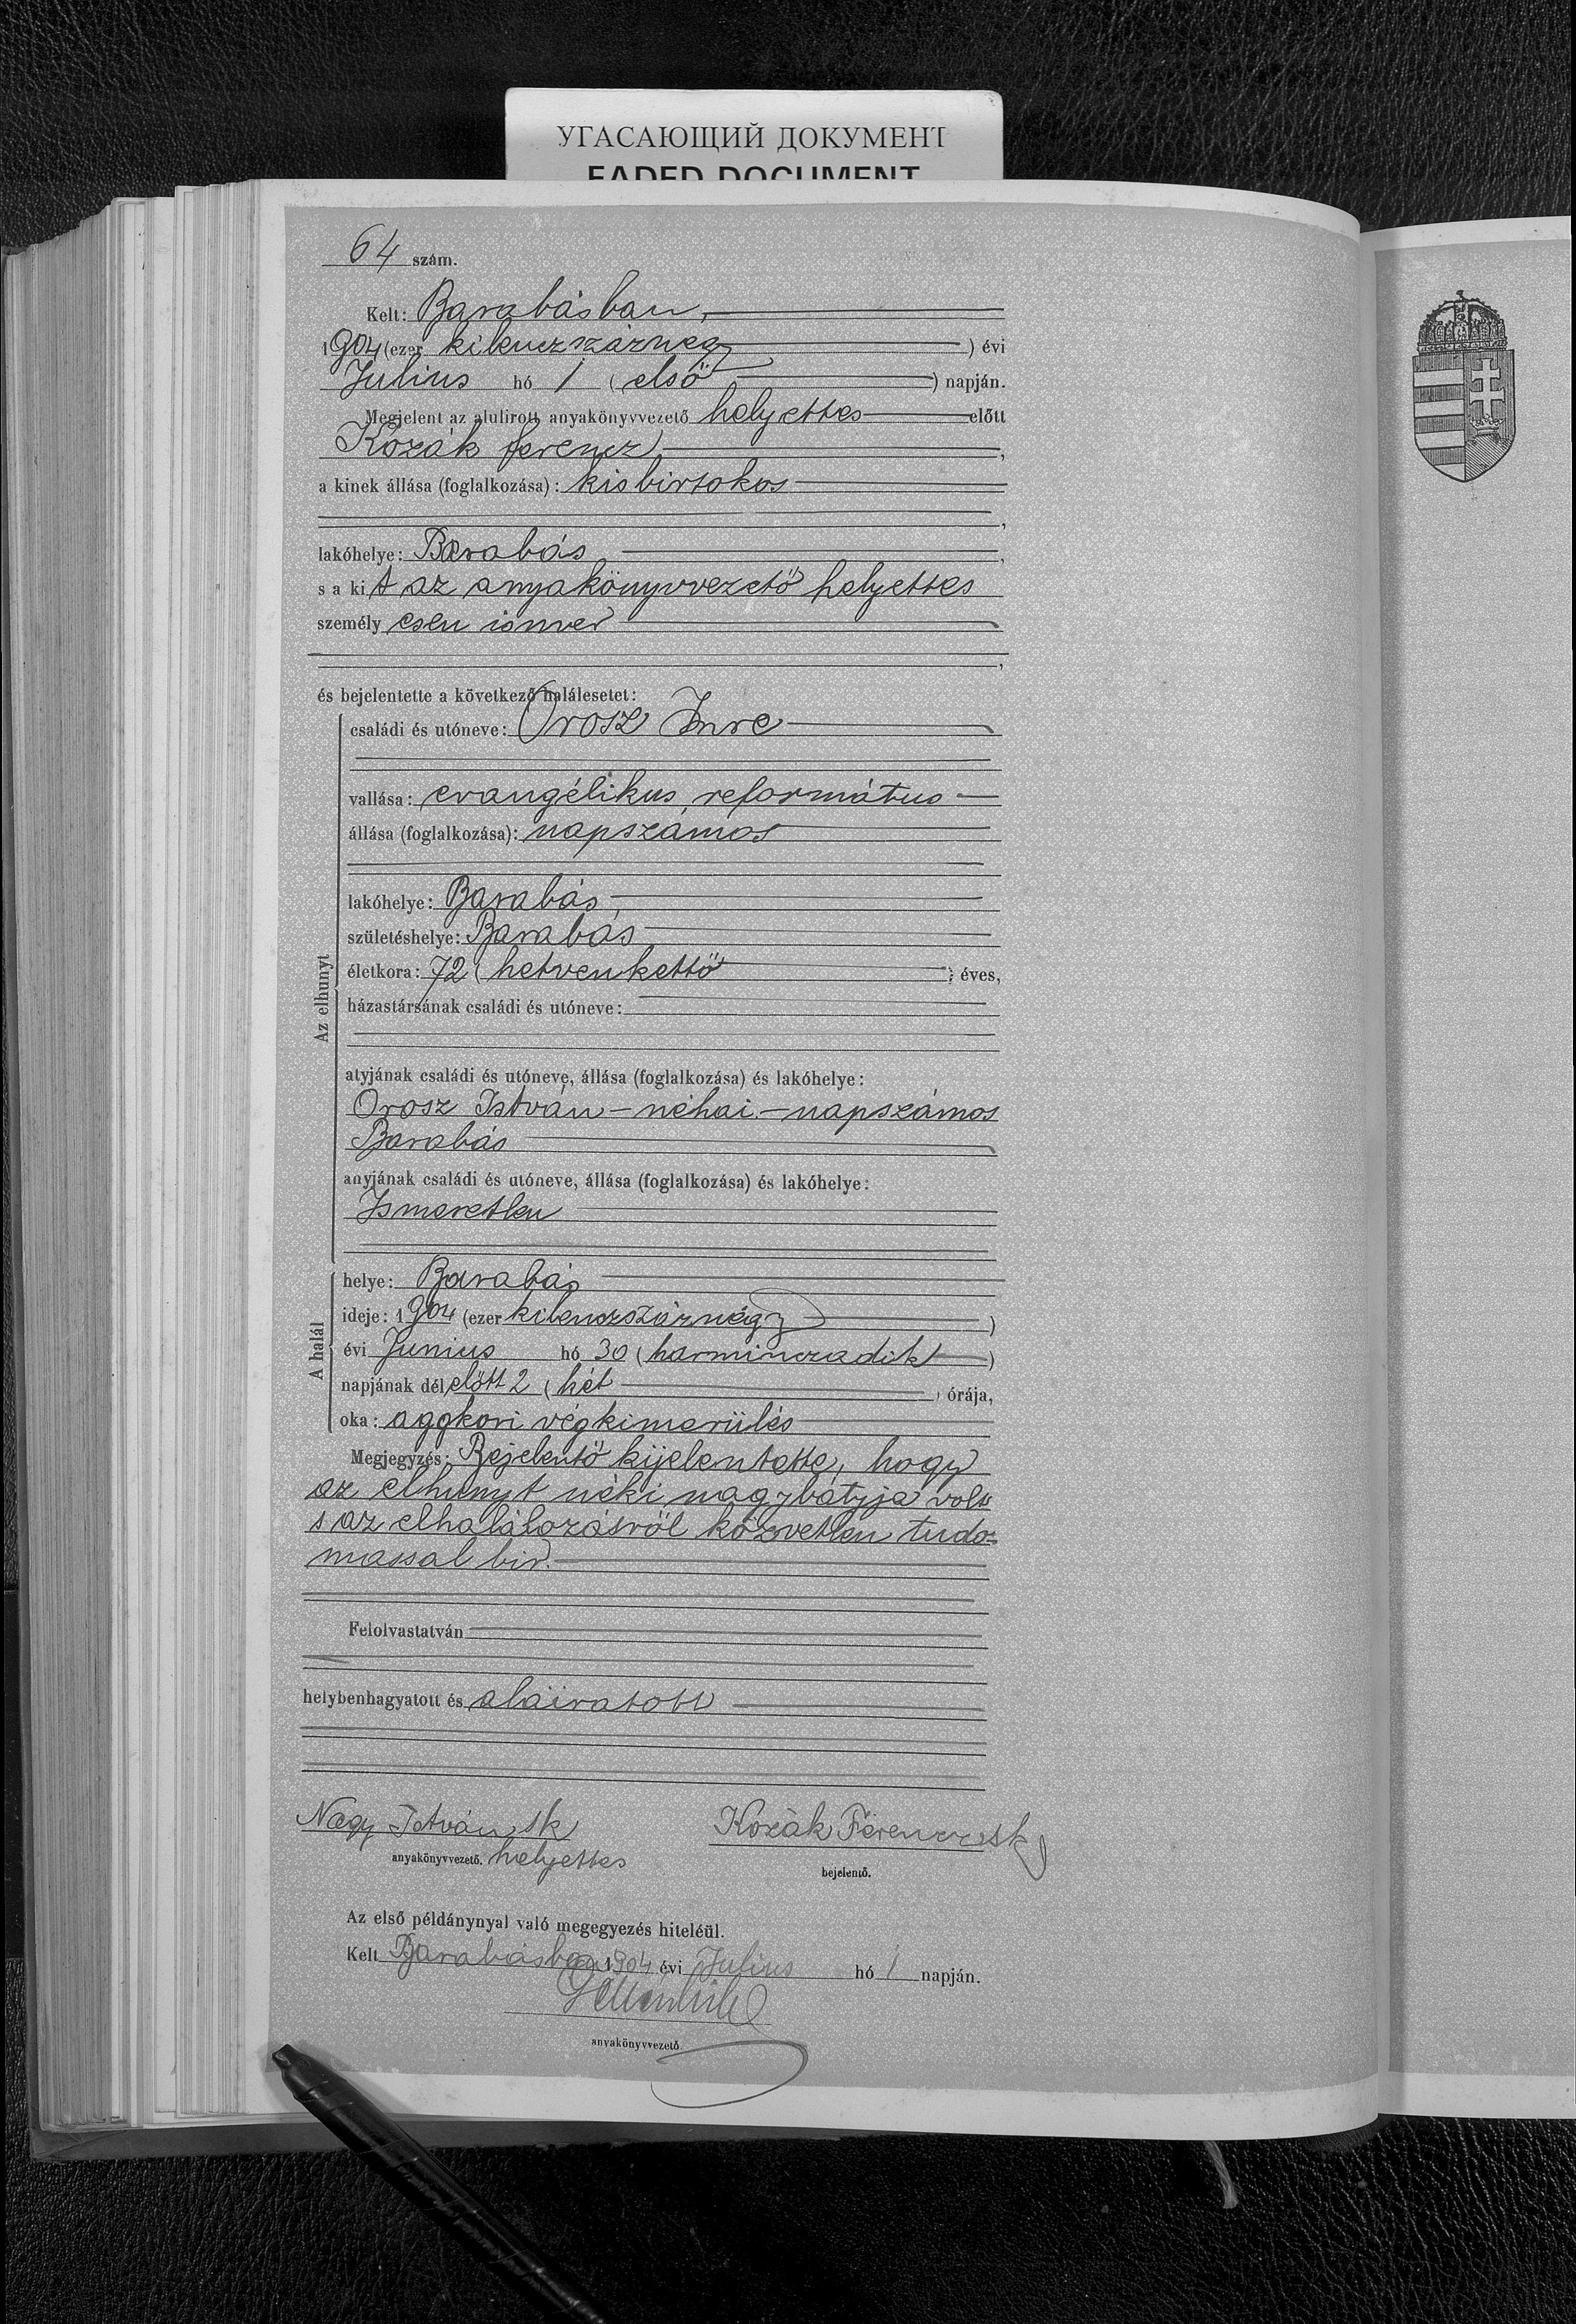 УГАСАЮЩИЙ ДОКУМЕНТ
FADED DOCUMENT
64 szám.
Kelt: Barabásban,
1904 (ezer kilenczszáznégy ) évi
Julius hó 1 (első ) napján.
Megjelent az alulirott anyakönyvvezető helyettes előtt
Kozák Ferencz,
a kinek állása (foglalkozása): kisbirtokos
,
lakóhelye: Barabás,
s a kit az anyakönyvvezető helyettes
személyesen ismer
,
és bejelentette a következő halálesetet:
Az elhunyt
családi és utóneve: Orosz Imre
vallása: evangélikus református
állása (foglalkozása): napszámos
lakóhelye: Barabás,
születéshelye: Barabás
életkora: 72 (hetvenkettő ) éves,
házastársának családi és utóneve:
atyjának családi és utóneve, állása (foglalkozása) és lakóhelye:
Orosz István – néhai – napszámos
Barabás
anyjának családi és utóneve, állása (foglalkozása) és lakóhelye:
Ismeretlen
A halál
helye: Barabás
ideje: 1904 (ezer kilenczszáznégy )
évi Junius hó 30 (harminczadik )
napjának délelőtt 2 (két ) órája,
oka: aggkori végkimerülés
Megjegyzés: Bejelentő kijelentette, hogy
az elhunyt néki nagybátyja volt
s az elhalálozásról közvetlen tudo=
mással bir.
Felolvastatván
helybenhagyatott és aláiratott
Nagy István sk Kozák Ferencz sk
anyakönyvvezető. helyettes bejelentő.
Az első példánynyal való megegyezés hiteléül.
Kelt Barabásban 1904 évi Julius hó 1 napján.
anyakönyvvezető.